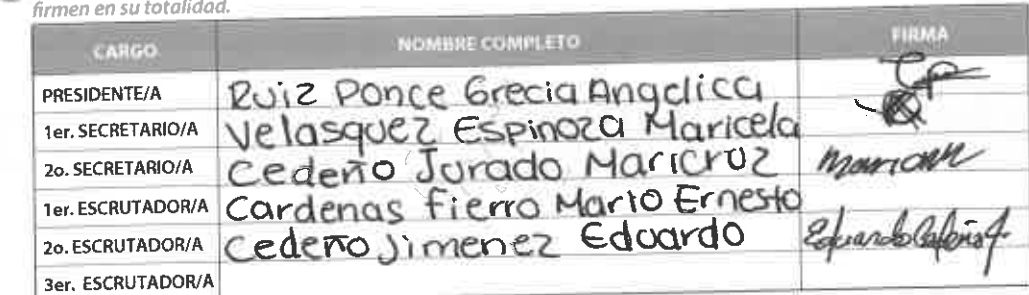 firmen en su totalidad.
CARGO NOMBRE COMPLETO FIRMA
PRESIDENTE/A Ruiz Ponce Grecia Angelica
1er. SECRETARIO/A Velasquez Espinoza Maricela
2o. SECRETARIO/A Cedeño Jurado Maricruz
1er. ESCRUTADOR/A Cardenas Fierro Mario Ernesto
2o. ESCRUTADOR/A Cedeño Jimenez Eduardo Eduardo Cedeño J.
3er. ESCRUTADOR/A